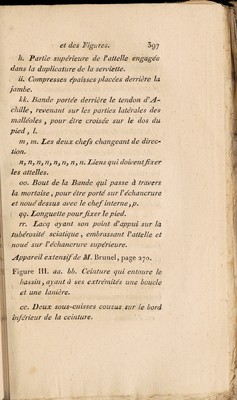 et des Figures. 397
h. Partie supérieure de l'attelle engagée
dans la duplicature de la serviette.
ii. Compresses épaisses placées derrière la
jambe.
kk. Bande portée derrière le tendon d'A-
chille, revenant sur les parties latérales des
malléoles, pour être croisée sur le dos du
pied, l.
m, m. Les deux chefs changeant de direc-
tion.
n, n, n, n, n, n, n. Liens qui doivent fixer
les attelles.
oo. Bout de la Bande qui passe à travers
la mortaise, pour être porté sur l'échancrure
et noué dessus avec le chef interne, p.
qq. Longuette pour fixer le pied.
rr. Lacq ayant son point d'appui sur la
tubérosité sciatique, embrassant l'attelle et
noué sur l'échancrure supérieure.
Appareil extensif de M. Brunel, page 270.
Figure III. aa. bb. Ceinture qui entoure le
bassin, ayant à ses extrémités une boucle
et une lanière.
cc. Deux sous-cuisses cousus sur le bord
inférieur de la ceinture.